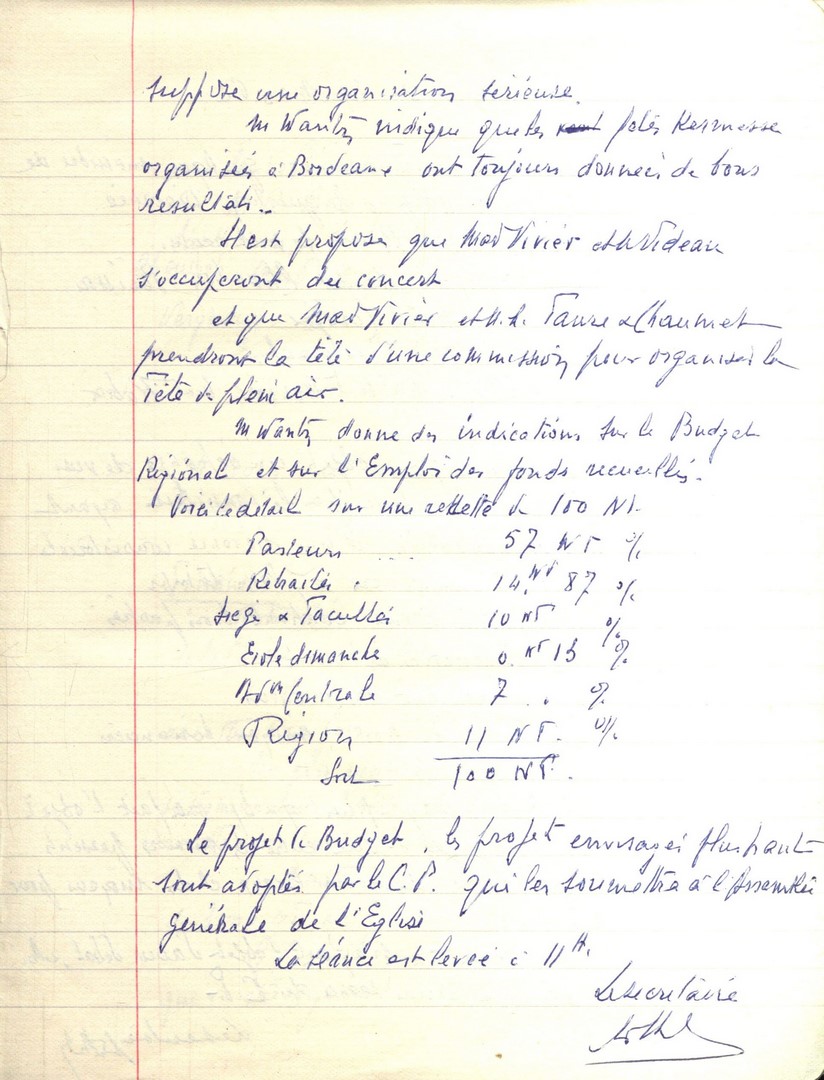 suppose une organisation sérieuse.
M Wantz indique que les fetes Kermesse
organisées à Bordeaux ont toujours données de bons
resultats..
Il est propose que Mad Vivier et M Videau
s'occuperont du concert
et que Mad Vivier et M.M. Faure & Chaumet
prendront la tête d'une commission pour organiser la
Fête de plein air.
M Wantz donne des indications sur le Budget
Régional et sur l'Emploi des fonds recueillis.
Voici le détail sur une recette de 100 NF.
Pasteurs .... 57 NF %
Retraités . 14. NF 87 %
Siege & Facultés 10 NF %
Ecole dimanche 0. NF 13 %
Adon Centrale 7 . %
Région 11 NF. %
Soit 100 NF.
Le projet de Budget, les projets envisagés plus haut
sont adoptés par le C.P. qui les soumettra à l'Assemblée
générale de l'Eglise
La séance est levée à 11 H.
Le secretaire